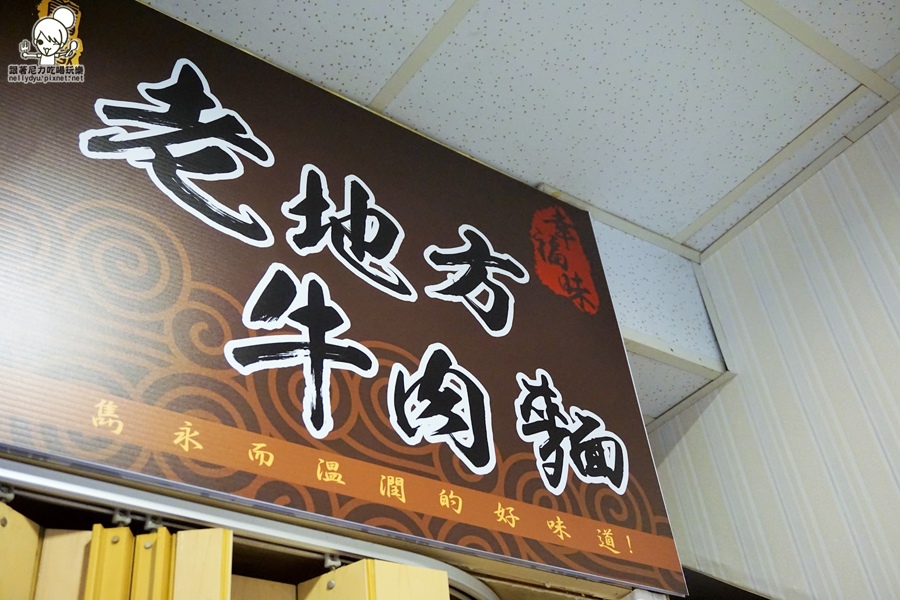 跟著尼力吃喝玩樂
nellydyu.pixnet.net
老地方
牛肉麵
幸福味
雋永而溫潤的好味道!